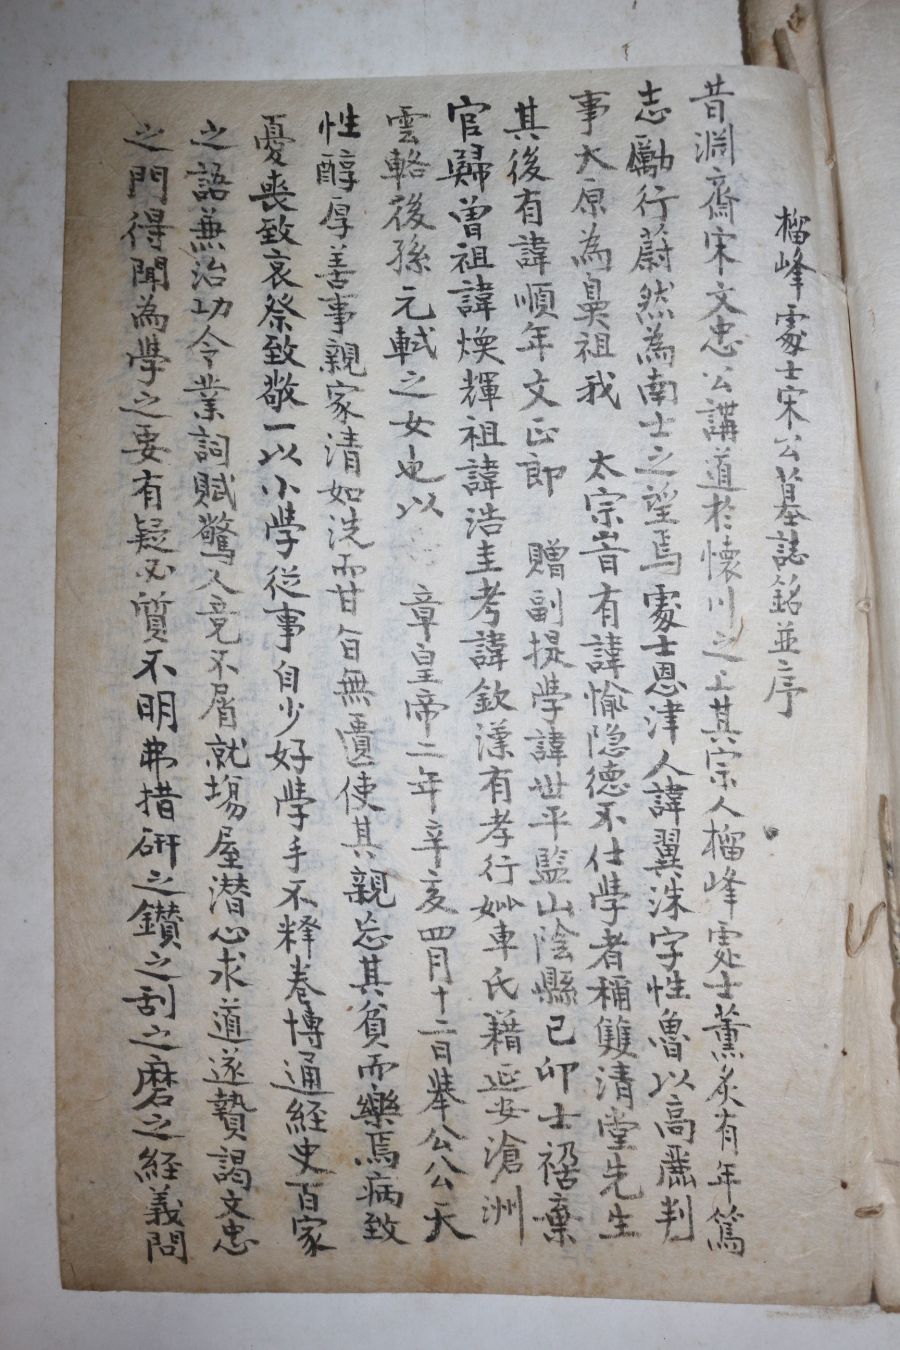 榴峰處士宋公墓誌銘並序
昔淵齋宋文忠公講道於懷川之上其宗人榴峰處士薰炙有年篤
志勵行蔚然為南士之望焉處士恩津人諱翼洙字性魯以高麗判
事大原為鼻祖我 太宗峕有諱愉隐德不仕學者稱雙清堂先生
其後有諱順年文正郎 贈副提學諱世平監山陰縣己卯士禍棄
官歸曽祖諱煥輝祖諱浩圭考諱欽漢有孝行妣車氏籍延安滄洲
雲輅後孫元軾之女也以 章皇帝二年辛亥四月十二日擧公公天
性醇厚善事親家清如洗而甘旨無匱使其親忘其貧而樂焉病致
憂喪致哀祭致敬一以小學從事自少好學手不释卷博通經史百家
之語兼治功令業詞賦驚人竟不屑就場屋潜心求道遂贄謁文忠
之門得聞為學之要有疑必質不明弗措硏之鑚之刮之磨之經義問